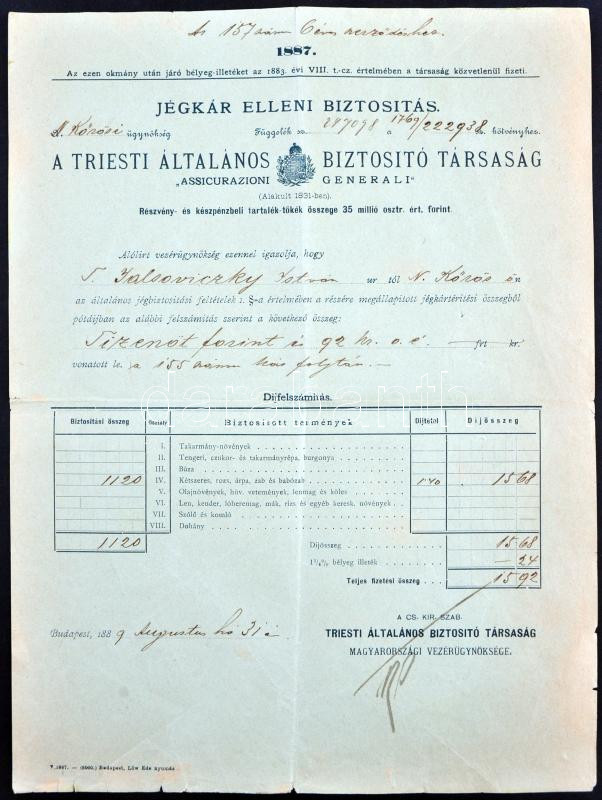 Az 157 szám 6 éves szerződéshez.
1887.
Az ezen okmány után járó bélyeg-illetéket az 1883. évi VIII. t.-cz. értelmében a társaság közvetlenül fizeti.
JÉGKÁR ELLENI BIZTOSITÁS.
N. Kőrösi ügynökség Függelék sz. a 1769/222938 sz. kötvényhez.
A TRIESTI ÁLTALÁNOS BIZTOSITÓ TÁRSASÁG
„ASSICURAZIONI GENERALI“
(Alakult 1831-ben).
Részvény- és készpénzbeli tartalék-tőkék összege 35 millió osztr. ért. forint.
Alólirt vezérügynökség ezennel igazolja, hogy
T. István ur tól N. Kőrös ön
az általános jégbiztositási feltételek 1. §-a értelmében a részére megállapitott jégkártéritési összegből
pótdijban az alábbi felszámitás szerint a következő összeg:
Tizenöt forint és 92 kr. o. é. frt kr.
vonatott le. a 155 számu kár folytán.
Dijfelszámitás.
Biztositási összeg Osztály Biztositott termények Dijtétel Dijösszeg
I. Takarmány-növények
II. Tengeri, czukor- és takarmányrépa, burgonya
III. Búza
1120 IV. Kétszeres, rozs, árpa, zab és babózab 1·40 15 68
V. Olajnövények, hüv. vetemények, lenmag és köles
VI. Len, kender, lóheremag, mák, rizs és egyéb keresk. növények
VII. Szőlő és komló
VIII. Dohány
1120 Dijösszeg 15 68
1¼% bélyeg illeték — 24
Teljes fizetési összeg 15 92
Budapest, 1889 Augustus hó 31 én
A CS. KIR. SZAB.
TRIESTI ÁLTALÁNOS BIZTOSITÓ TÁRSASÁG
MAGYARORSZÁGI VEZÉRÜGYNÖKSÉGE.
V. 1887. — (8960.) Budapest, Löw Ede nyomda
darabanth